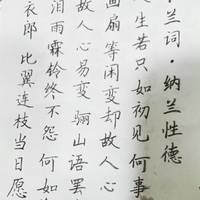 兰词·纳兰性德
生若只如初见 何事
画扇 等闲变却故人心
故人心易变 骊山语罢
泪雨霖铃终不怨 何如
衣郎 比翼连枝当日愿